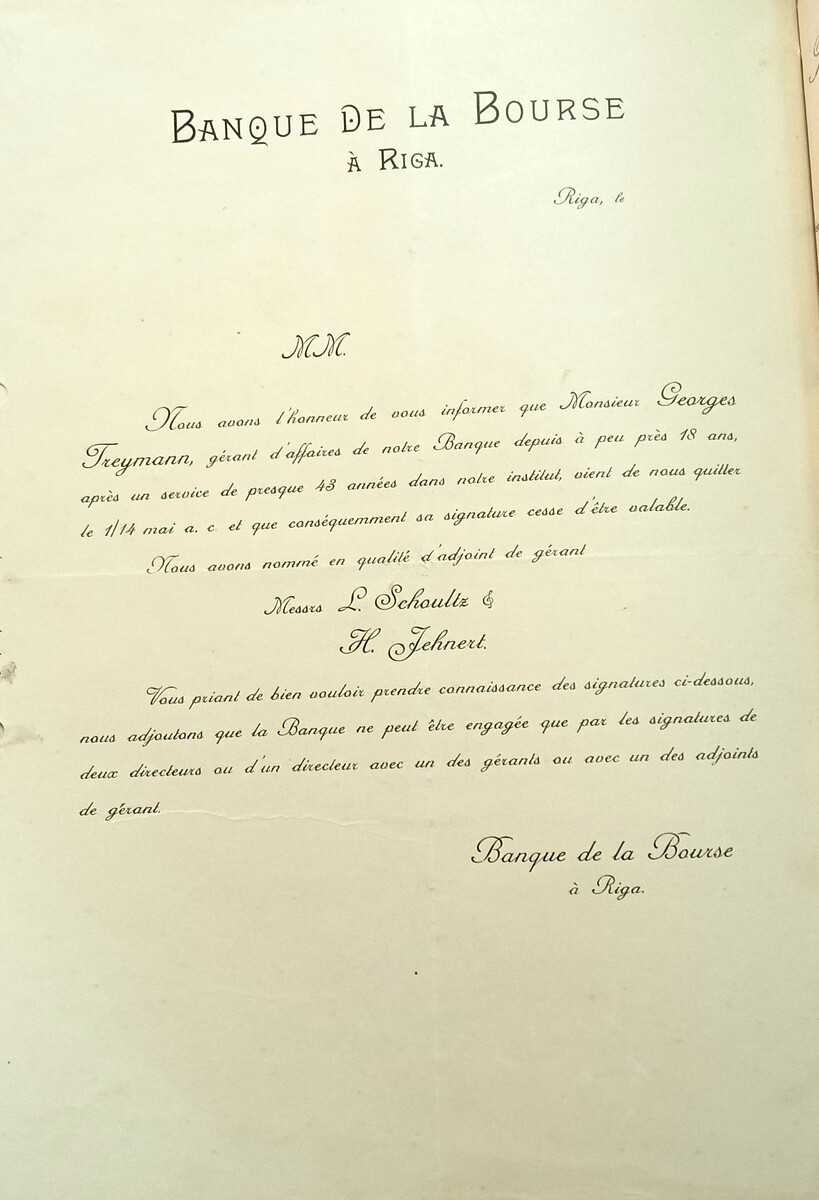 BANQUE DE LA BOURSE
À RIGA.
Riga, le
MM.
Nous avons l'honneur de vous informer que Monsieur Georges
Treymann, gérant d'affaires de notre Banque depuis à peu près 18 ans,
après un service de presque 43 années dans notre institut, vient de nous quitter
le 1/14 mai a. c. et que conséquemment sa signature cesse d'être valable.
Nous avons nommé en qualité d'adjoint de gérant
Messrs L. Schoultz &
H. Jehnert.
Vous priant de bien vouloir prendre connaissance des signatures ci-dessous,
nous adjoutons que la Banque ne peut être engagée que par les signatures de
deux directeurs ou d'un directeur avec un des gérants ou avec un des adjoints
de gérant.
Banque de la Bourse
à Riga.